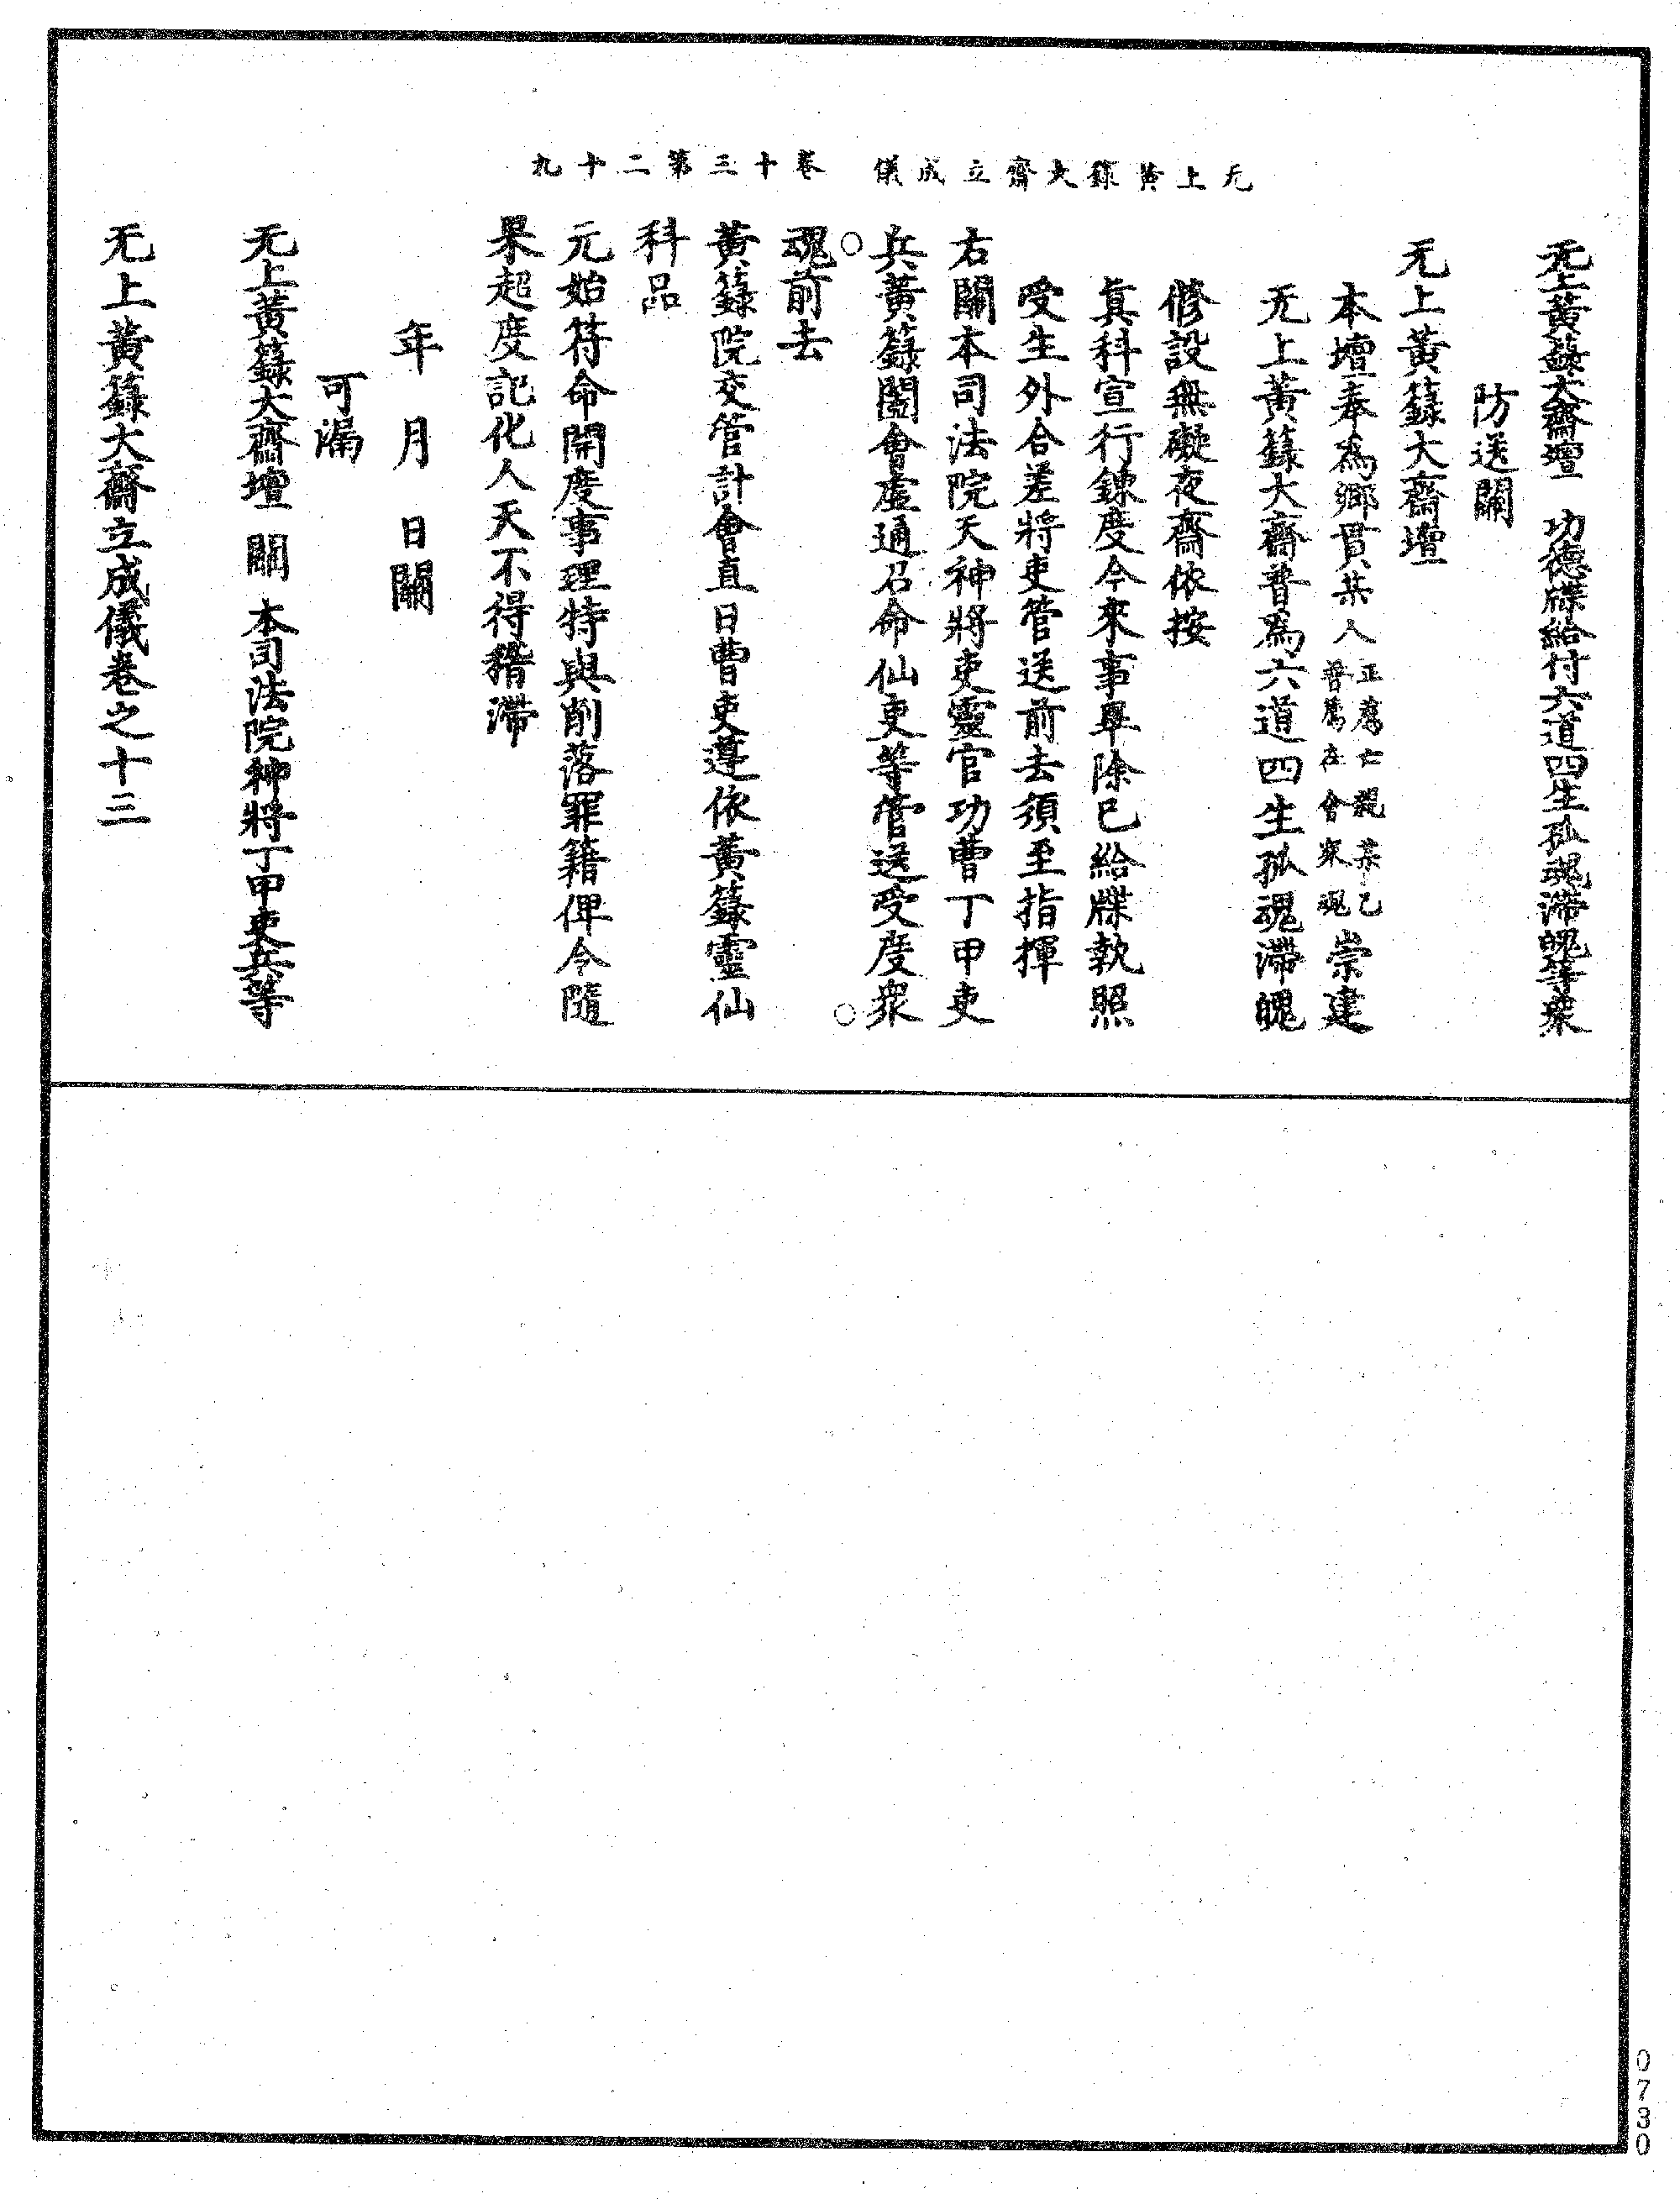 无上黃籙大齋立成儀　卷十三第二十九
无上黃籙大齋壇　功德牒給付六道四生孤魂滯魄等衆
防送關
无上黃籙大齋壇
本壇奉爲鄉貫某人正薦亡親某乙普薦在會衆魂崇建
无上黃籙大齋普爲六道四生孤魂滯魄
修設無礙夜齋依按
眞科宣行鍊度今來事畢除已給牒執照
受生外合差將吏管送前去須至指揮
右關本司法院天神將吏靈官功曹丁甲吏
兵黃籙闔會虛通召命仙吏等管送受度衆
魂前去
黃籙院交管計會直日曹吏遵依黃籙靈仙
科品
元始符命開度事理特與削落罪籍俾令隨
果超度記化人天不得稽滯
年　月　日關
可漏
无上黃籙大齋壇　關　本司法院神將丁甲吏兵等
无上黃籙大齋立成儀卷之十三
0730